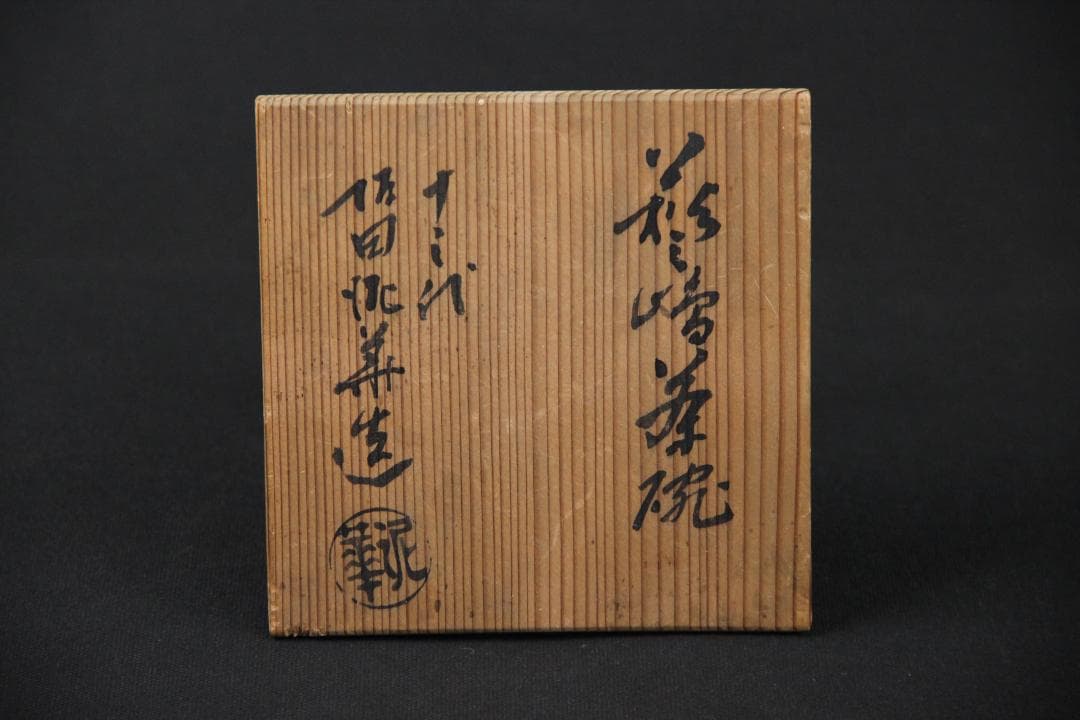 萩三嶋茶碗
十三代
坂田泥華造
泥華